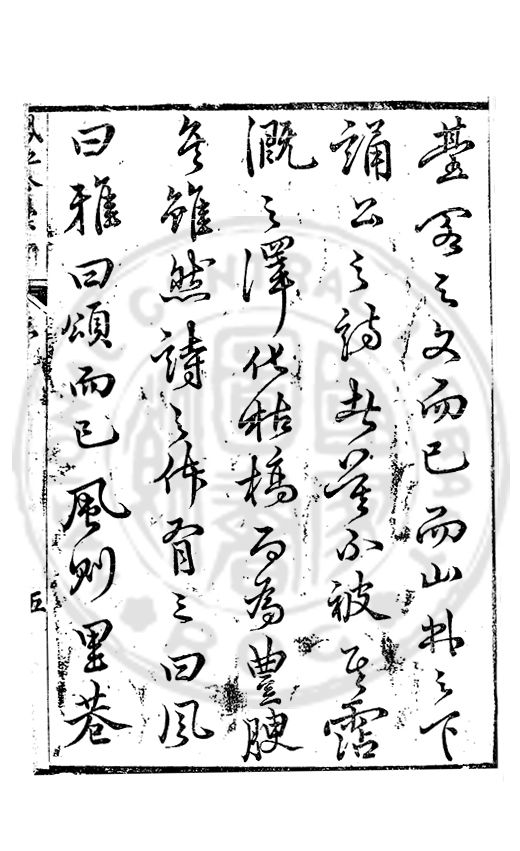 臺閣之文而已而山林之下
誦公之詩者莫不被其霑
溉之澤化枯槁而為豊腴
矣雖然詩之体有三曰風
曰雅曰頌而已風則里巷
五